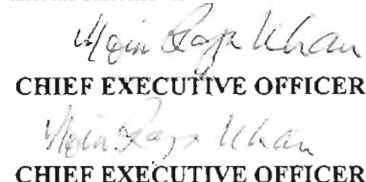 Moin Raza Khan
CHIEF EXECUTIVE OFFICER
Moin Raza Khan
CHIEF EXECUTIVE OFFICER